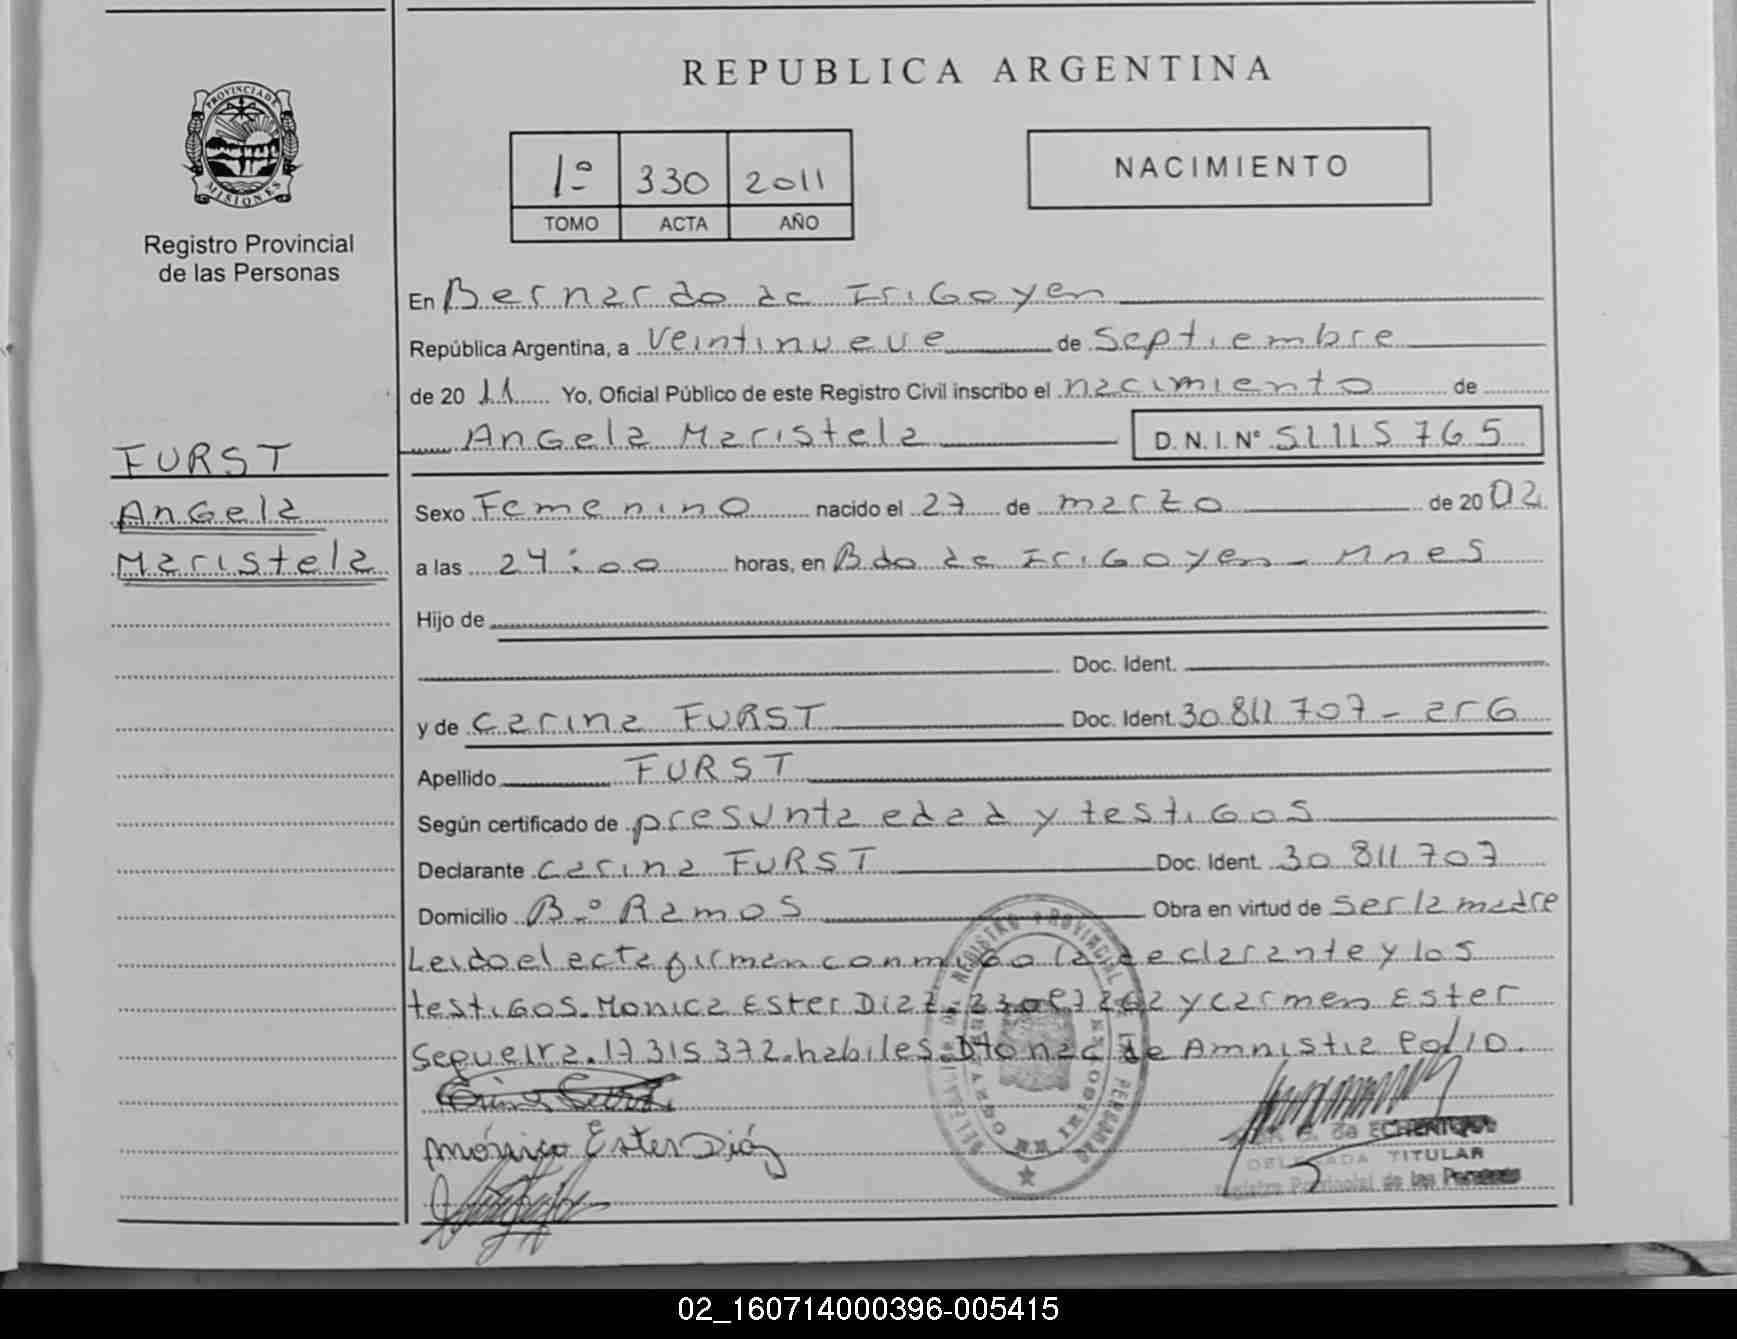 REPUBLICA ARGENTINA
PROVINCIA DE MISIONES
Registro Provincial
de las Personas
1º 330 2011
TOMO ACTA AÑO
NACIMIENTO
En Bernardo de Irigoyen
República Argentina, a veintinueve de septiembre
de 20 11 Yo, Oficial Público de este Registro Civil inscribo el nacimiento de
Angela Maristela D.N.I. Nº 51115765
FURST
Angela
Maristela
Sexo Femenino nacido el 27 de marzo de 20 02
a las 24:00 horas, en Bdo de Irigoyen - Mnes
Hijo de
Doc. Ident.
y de carina FURST Doc. Ident. 30811707 - arG
Apellido FURST
Según certificado de presunta edad y testigos
Declarante carina FURST Doc. Ident. 30 811 707
Domicilio Bº Ramos Obra en virtud de ser la madre
Leido el acta firman conmigo la declarante y los
testigos. Monica Ester Diaz. y carmen Ester
Sequeira. 17315372. habiles. Dto nac de Amnistia
Mónica Ester Diáz
de ECHENIQUE
DELEGADA TITULAR
Registro Provincial de las Personas
02_160714000396-005415